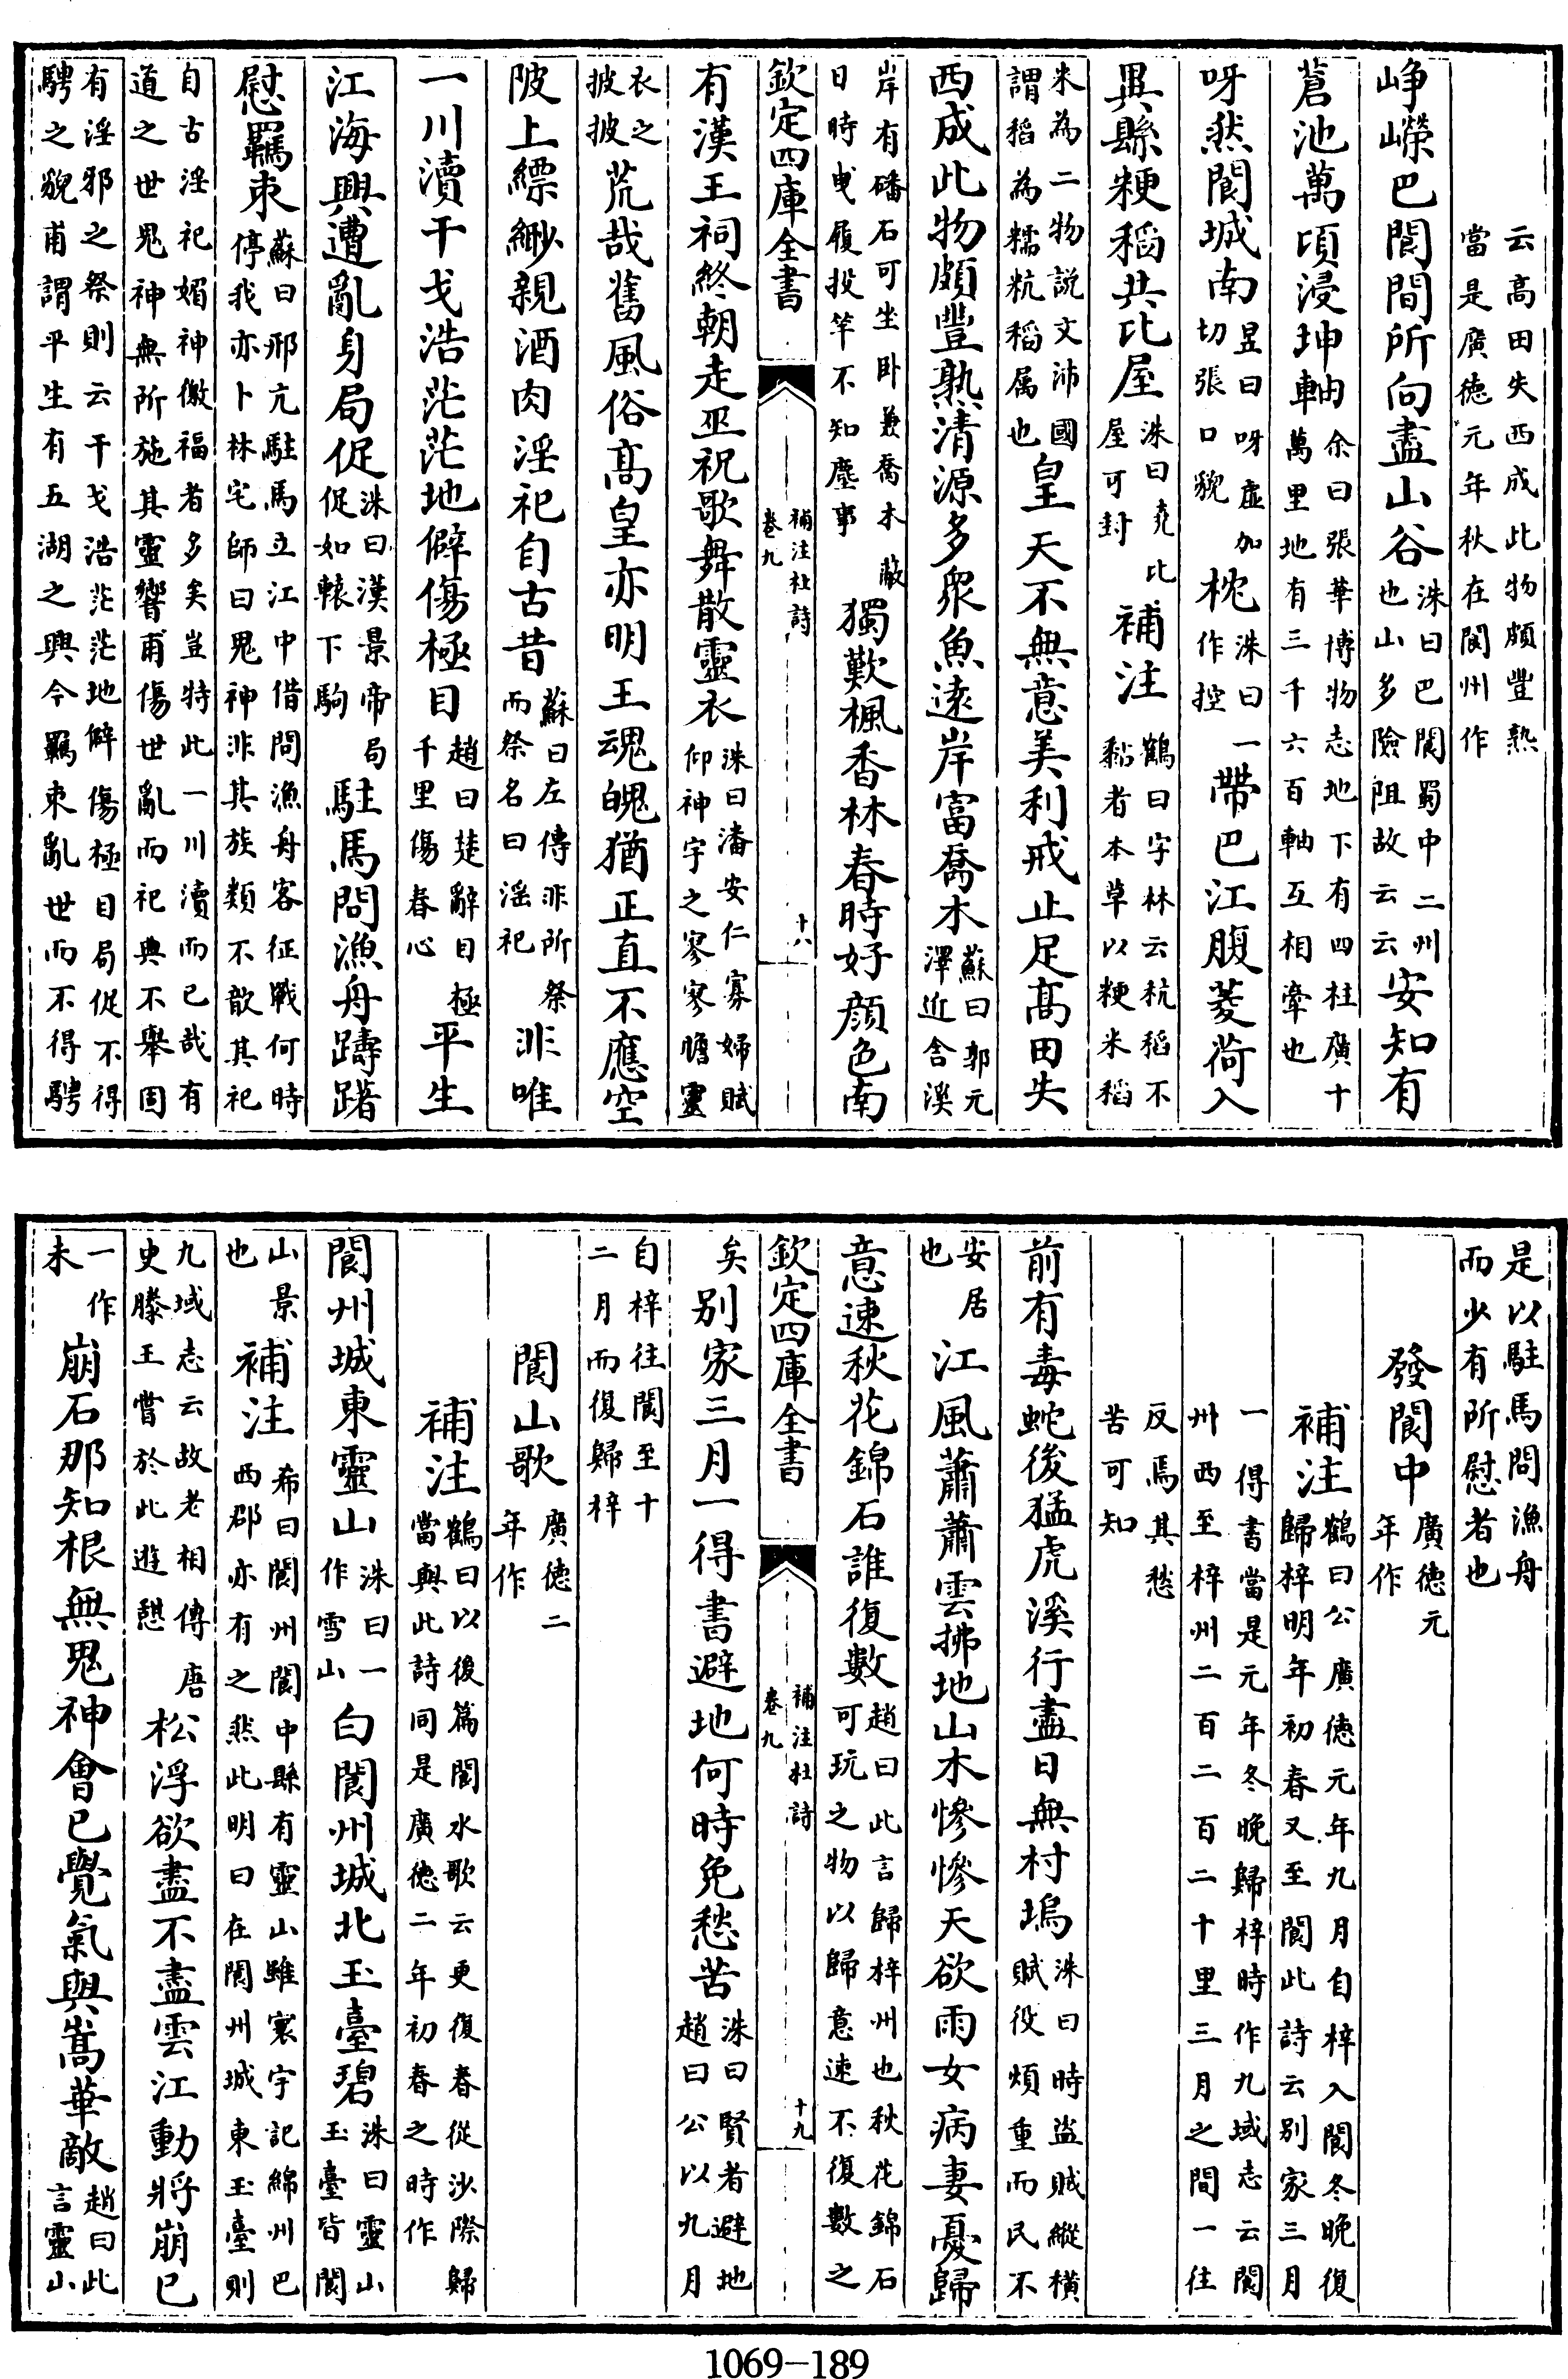 云高田失西成此物頗豐熟
當是廣徳元年秋在閬州作
峥嶸巴閬間所向盡山谷洙曰巴閬蜀中二州也山多險阻故云云安知有
蒼池萬頃浸坤軸余曰張華博物志地下有四柱廣十萬里地有三千六百軸互相牽也
呀然閬城南昱曰呀虚加切張口貌枕洙曰一作控帶巴江腹菱荷入
異縣粳稻共比屋洙曰堯比屋可封補注鶴曰字林云秔稻不黏者本草以粳米稻
米為二物說文沛國謂稻為糯秔稻属也皇天不無意美利戒止足髙田失
西成此物頗豐熟清源多衆魚逺岸富喬木蘇曰郭元澤近含溪
岸有磻石可坐卧兼喬木蔽日時曳履投竿不知塵事獨歎楓香林春時好顔色南
欽定四庫全書
補注杜詩
卷九
十八
有漢王祠終朝走巫祝歌舞散靈衣洙曰潘安仁寡婦賦仰神宇之寥寥瞻靈
衣之披披荒哉舊風俗髙皇亦明王魂魄猶正直不應空
陂上縹緲親酒肉淫祀自古昔蘇曰左傳非所祭而祭名曰淫祀非唯
一川瀆干戈浩茫茫地僻傷極目趙曰楚辭目極千里傷春心平生
江海興遭亂身局促洙曰漢景帝局促如轅下駒駐馬問漁舟躊躇
慰羈束蘇曰邢亢駐馬立江中借問漁舟客征戰何時停我亦卜林宅師曰鬼神非其族類不歆其祀
自古淫祀媚神徼福者多矣豈特此一川瀆而已哉有道之世鬼神無所施其靈響甫傷世亂而祀典不舉固
有淫邪之祭則云干戈浩茫茫地僻傷極目局促不得騁之貌甫謂平生有五湖之興今羈束亂世而不得騁
是以駐馬問漁舟而少有所慰者也
發閬中廣徳元年作
補注鶴曰公廣徳元年九月自梓入閬冬晚復歸梓明年初春又至閬此詩云别家三月
一得書當是元年冬晚歸梓時作九域志云閬州西至梓州二百二百二十里三月之間一往
反焉其愁苦可知
前有毒蛇後猛虎溪行盡日無村塢洙曰時盗賊縱横賦役煩重而民不
安居也江風蕭蕭雲拂地山木惨惨天欲雨女病妻憂歸
意速秋花錦石誰復數趙曰此言歸梓州也秋花錦石可玩之物以歸意速不復數之
欽定四庫全書
補注杜詩
卷九
十九
矣别家三月一得書避地何時免愁苦洙曰賢者避地趙曰公以九月
自梓往閬至十二月而復歸梓
閬山歌廣徳二年作
補注鶴曰以後篇閬水歌云更復春從沙際歸當與此詩同是廣徳二年初春之時作
閬州城東靈山洙曰一作雪山白閬州城北玉臺碧洙曰靈山玉臺皆閬
山景也補注希曰閬州閬中縣有靈山雖寰宇記綿州巴西郡亦有之然此明曰在閬州城東玉臺則
九域志云故老相傳唐史滕王嘗於此遊憇松浮欲盡不盡雲江動將崩已
一作未崩石那知根無鬼神會已覺氣與嵩華敵趙曰此言靈山
1069-189